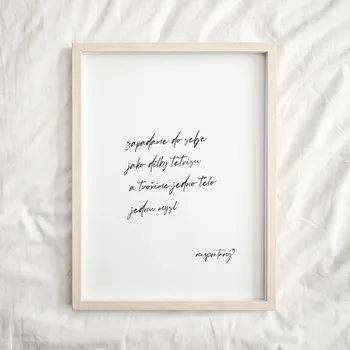 zapadáme do sebe
jako dílky tetrisu
a tvoříme jedno tělo
jednu mysl